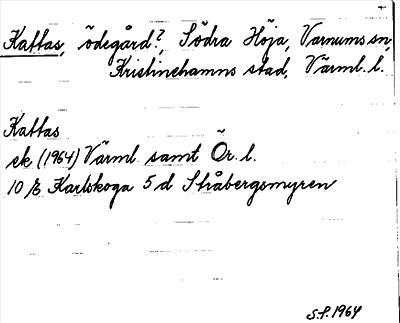 Kattas, ödegård?, Södra Höja, Varnums sn,
Kristinehamns stad, Värml. l.
Kattas
ek (1964) Värml. samt Ör. l.
10 Karlskoga 5 d Stråbergsmyren
S.P. 1964